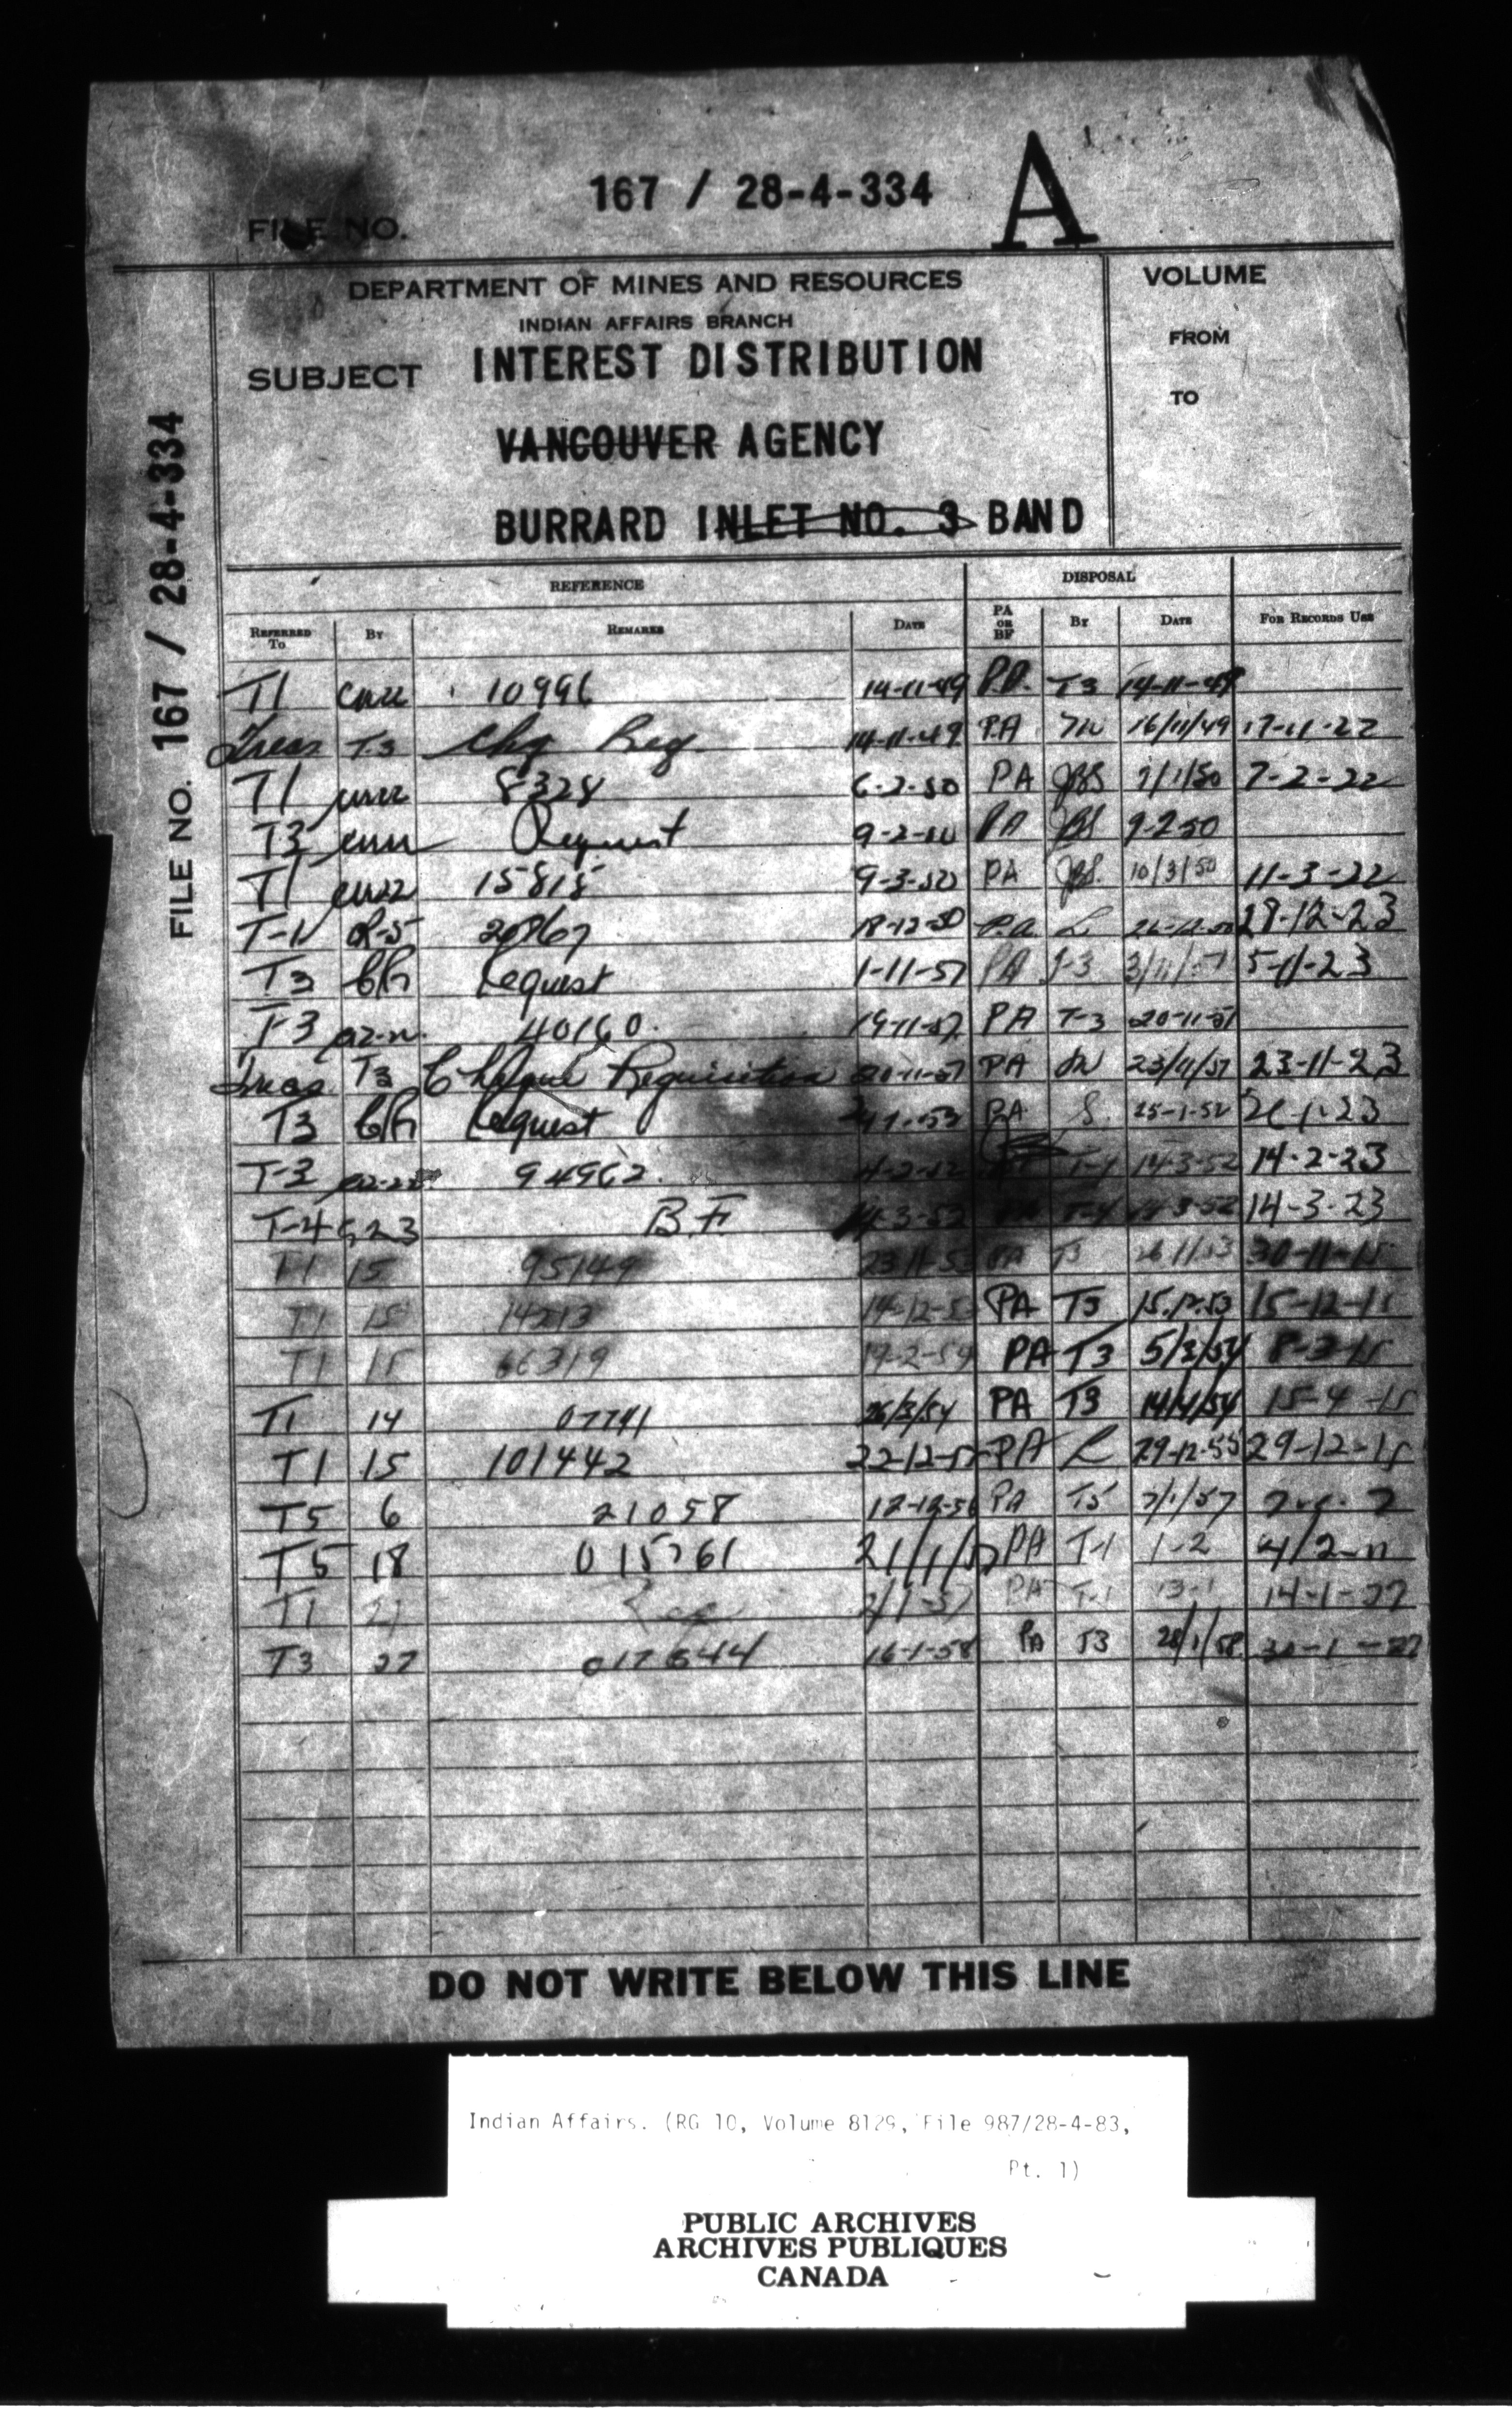 167 / 28-4-334 A
FILE NO.
DEPARTMENT OF MINES AND RESOURCES
INDIAN AFFAIRS BRANCH
SUBJECT INTEREST DISTRIBUTION
VANCOUVER AGENCY
BURRARD INLET NO. 3 BAND
VOLUME
FROM
TO
FILE NO. 167 / 28-4-334
REFERENCE DISPOSAL
REFERRED TO BY REMARKS DATE PA OR BF BY DATE FOR RECORDS USE
T1 10996 14-11-49 P.A. T3 14-11-49
Treas T.3 Chq Req 14-11-49 PA 16/11/49 17-11-22
T1 8328 6-2-50 PA JBS 7/1/50 7-2-22
T3 Request 9-2-50 PA JBS 9-2-50
T1 15815 9-3-50 PA JBS. 10/3/50 11-3-22
T-1 R-5 20867 18-12-50 P.A. L 29-12-23
T3 Request 1-11-51 PA T-3 3/11/51 5-11-23
T-3 40160. 19-11-51 PA T-3 20-11-51
Treas T3 Cheque Requisition 20-11-51 PA 23/11/51 23-11-23
T3 Request PA S. 25-1-52 26-1-23
T-3 94962. T-4 14-3-52 14-2-23
T-4 S23 B.F. 14-3-52 PA T-4 14-3-52 14-3-23
T1 15 95149 23-11-53 PA T3 30-11-15
T1 15 14213 14-12-53 PA T3 15.12.53 15-12-15
T1 15 66319 19-2-54 PA T3 5/3/54 8-3-15
T1 14 07741 26/3/54 PA T3 14/4/54 15-4-15
T1 15 101442 22-12-55 PA L 29-12-55 29-12-15
T5 6 21058 12-12-56 PA T5 7/1/57
T5 18 015761 21/1/57 PA T-1 1-2 4/2
T1 27 2/1-57 PA T-1 13-1 14-1-27
T3 27 017644 16-1-58 PA T3 28/1/58 30-1-27
DO NOT WRITE BELOW THIS LINE
Indian Affairs. (RG 10, Volume 8129, File 987/28-4-83,
Pt. 1)
PUBLIC ARCHIVES
ARCHIVES PUBLIQUES
CANADA